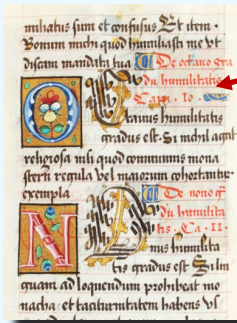 miliatus sum et confusus Et item ·
Bonum michi quod humiliasti me vt
discam mandata tua De octauo gra
du humilitatis
OCtauus humilitatis
gradus est · Si nichil agat
religiosa nisi quod communis mona
sterii regula vel maiorum cohortantur
exempla De nono
du humilita
tis · Ca · II
NOnus humilita
tis gradus est Si lin
guam ad loquendum prohibeat mo
nacha · et taciturnitatem habens vs